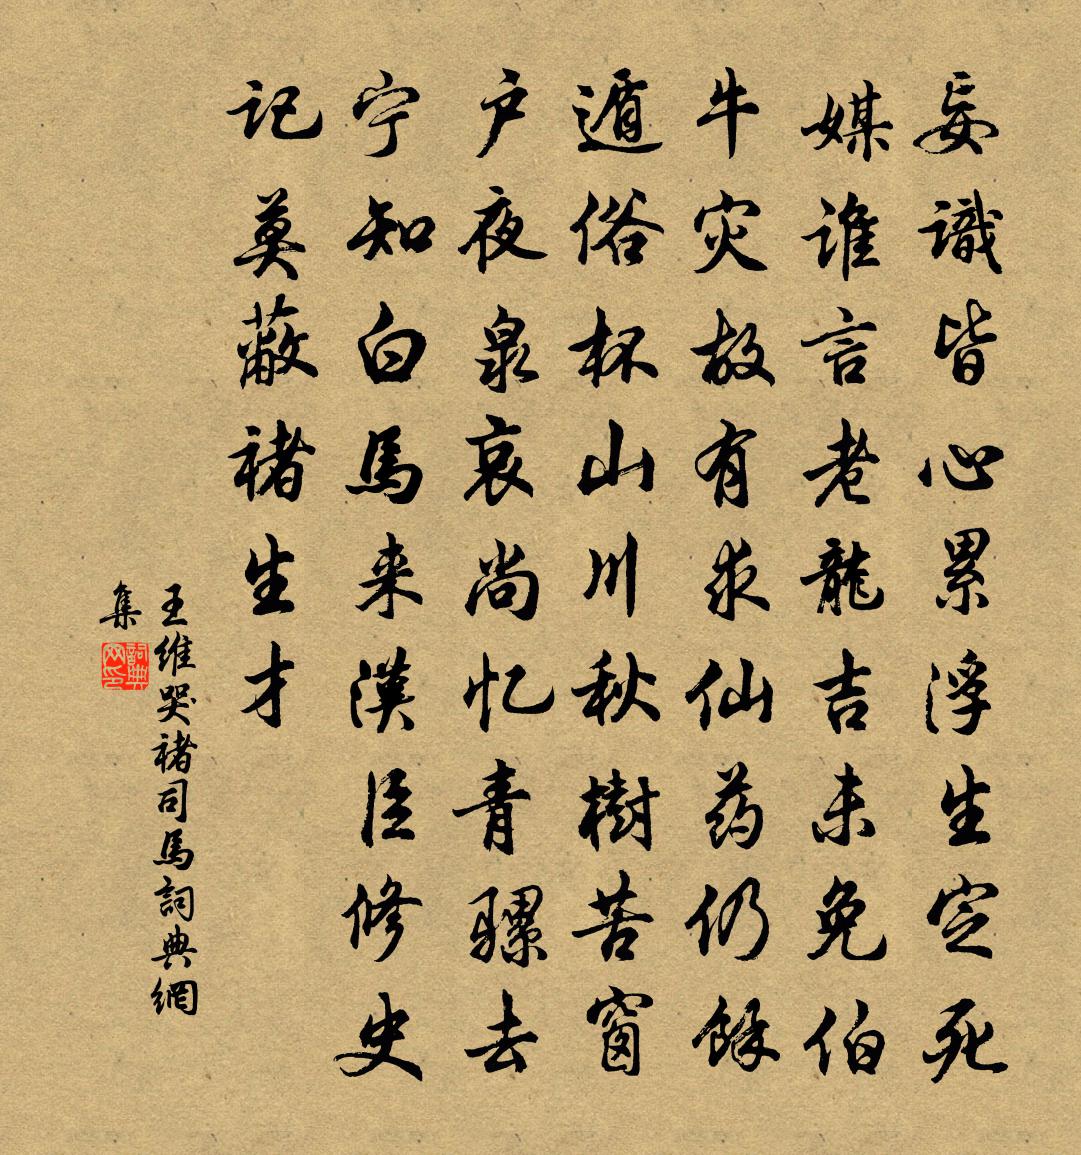 妄識皆心累浮生定死
媒誰言老龍吉未免伯
牛灾故有求仙药仍餘
遁俗杯山川秋樹苦窗
户夜泉哀尚忆青骡去
宁知白馬来漢臣修史
记莫蔽褚生才
王维哭褚司馬詞典網
集
詞典網印